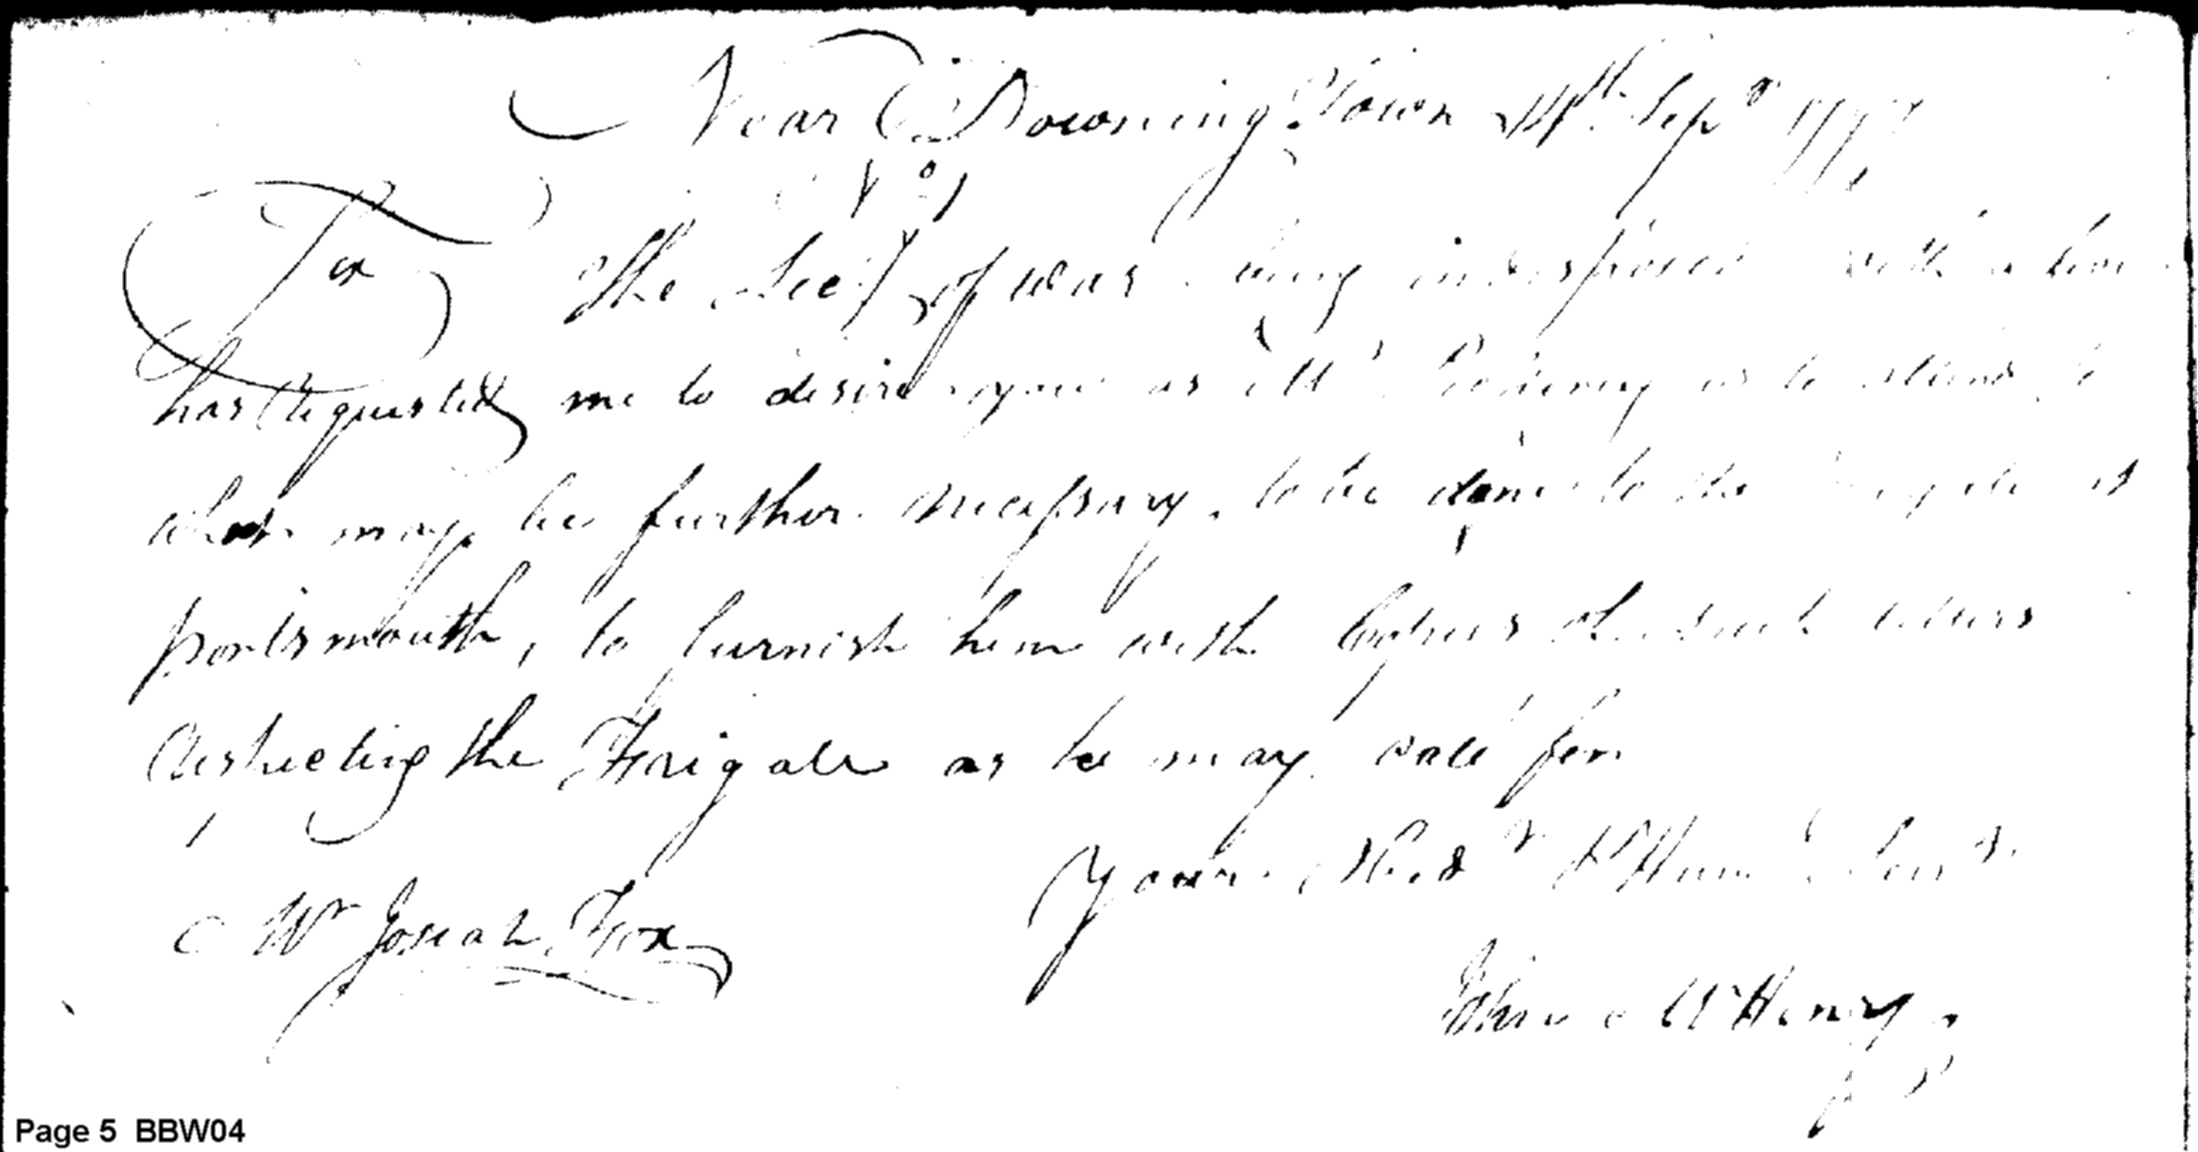 Near Downing Town 14th Sepr 1797
No 1
Sir
The Secy of war being indisposed with a
has requested me to desire you as Mr is to attend to
what may be further necessary to be done to the Frigate at
portsmouth, to furnish him with Copies of such letters
respecting the Frigate as he may call for
Your Obedt & Hume Servt
Mr Josiah Fox
John McHenry
Page 5 BBW04